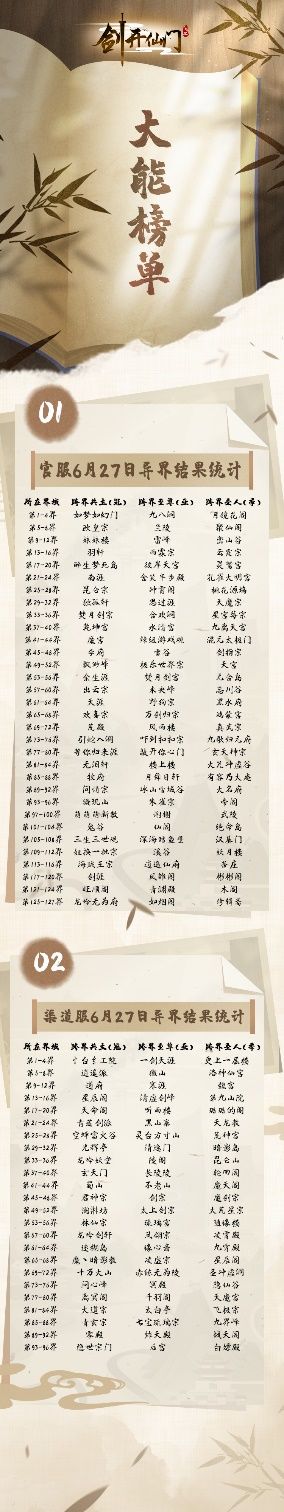 剑开仙门
大能榜单
01
官服6月27日异界结果统计
所在界域 跨界共主(冠) 跨界至尊(亚) 跨界圣人(季)
第1-4界 如梦如幻门 九八阁 月镜花阁
第5-8界 欧皇宗 兰陵 梁仙阁
第9-12界 妹妹楼 雷峰 蛮山谷
第13-16界 羽轩 雨霖宗 云霞宗
第17-20界 醉生梦死岛 彼岸天宫 灵鹫宫
第21-24界 南涯 含笑半步殿 孔雀大明宫
第25-28界 昆仑宗 冲霄阁 桃花源境
第29-32界 独孤轩 思过涯 天魔宗
第33-36界 焚月剑宗 合欢阁 星宫梦宗
第37-40界 乾坤宫 水清宫 九离天宫
第41-44界 魔宫 混元太极门
第45-48界 李府 雪谷 剑指宗
第49-52界 枫渺峰 极乐世界宗 天宫
第53-56界 余生涯 焚月剑宫 九合岛
第57-60界 出云宗 未央峰 忘川谷
第61-64界 天涯 野狗宗 黑水府
第65-68界 欢喜宗 万剑归宗 鸿蒙宫
第69-72界 荒殿 风雨楼 真武宗
第73-76界 引蛇入阁 吓到扣扣宗 九歌归元府
第77-80界 等你归来涯 敲开你心门 玄天神宗
第81-84界 无泪轩 楼上楼 大荒神虚谷
第85-88界 牧府 月舞日轩 有容乃大庵
第89-92界 问情宗 冰山雪域谷 大名府
第93-96界 缘悦山 朱雀宗 令阁
第97-100界 萌萌萌新教 剑棚 武陵
第101-104界 鬼谷 仙阁 绝命岛
第105-108界 三生三世观 深海鳕鱼堡 汉墓门
第109-112界 狂揍一拼宗 溪谷 妖月楼
第113-116界 海贼王宗 逍遥仙府 苍庄
第117-120界 剑涯 风雅阁 彬彬阁
第121-124界 旺顺阁 青渊殿 木阁
第125-127界 龙吟无为府 如烟阁 修辑斋
02
渠道服6月27日异界结果统计
所在界域 跨界共主(冠) 跨界至尊(亚) 跨界圣人(季)
第1-4界 一剑天涯 史上一层楼
第5-8界 逍遥派 微山 洛神仙宫
第9-12界 道府 寒涯 魏宫
第13-16界 星辰阁 清虚剑峰 第九山院
第17-20界 天命阁 听雨楼 璐璐的阁
第21-24界 青莲剑派 黑山寨 天龙教
第25-28界 空蝉雷火谷 灵台方寸山 荒神宫
第29-32界 光辉亭 清逸门 暗影岛
第33-36界 龙吟妖堂 陵阁 昆仑山
第37-40界 玄天门 长陵陵 轮回阁
第41-44界 蜀山 不老山 魔天阁
第45-48界 君神宗 剑宗 魔剑宗
第49-52界 澜湃坊 太上剑宗 太荒星宗
第53-56界 林仙宗 琉璃宫 随缘楼
第57-60界 龙吟剑轩 凤翎宗 凌霄殿
第61-64界 迷糊岛 缘心斋 九霄殿
第65-68界 魔丶暗影教 凌虚宗 星辰阁
第69-72界 十万大山 赤练无为陵 圣冲虚洞
第73-76界 问心峰 冥殿 隐仙谷
第77-80界 离冥阁 千羽阁 天魔宫
第81-84界 大道宗 太白亭 飞极宗
第85-88界 青玄宗 七宝琉璃宗 九界峰
第89-92界 零殿 炸天殿 战天阁
第93-96界 隐世宗门 后宫 白嫖殿